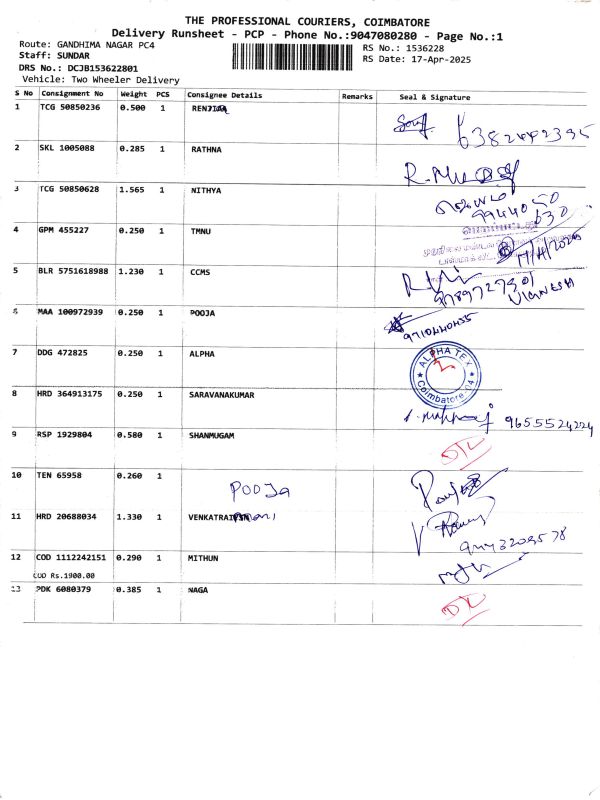 THE PROFESSIONAL COURIERS, COIMBATORE
Delivery Runsheet - PCP - Phone No.:9047080280 - Page No.:1
Route: GANDHIMA NAGAR PC4
RS No.: 1536228
Staff: SUNDAR
RS Date: 17-Apr-2025
DRS No.: DCJB153622801
Vehicle: Two Wheeler Delivery
S No Consignment No Weight PCS Consignee Details Remarks Seal & Signature
1 TCG 50850236 0.500 1
2 SKL 1005088 0.285 1 RATHNA
3 TCG 50850628 1.565 1 NITHYA
9944050
630
4 GPM 455227 0.250 1 TMNU
17/4/2025
5 BLR 5751618988 1.230 1 CCMS
VIGNESH
6 MAA 100972939 0.250 1 POOJA
9710440455
7 DDG 472825 0.250 1 ALPHA
ALPHA TEX
Coimbatore 04
8 HRD 364913175 0.250 1 SARAVANAKUMAR
9655524224
9 RSP 1929804 0.580 1 SHANMUGAM
10 TEN 65958 0.260 1
POOJA
11 HRD 20688034 1.330 1
12 COD 1112242151 0.290 1 MITHUN
COD Rs.1900.00
13 PDK 6080379 0.385 1 NAGA